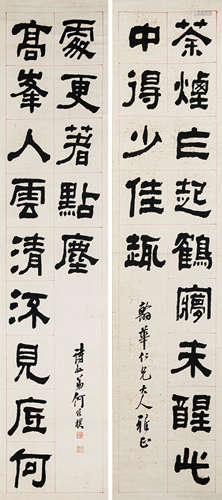 茶煙乍起鶴夢未醒此
中得少佳趣
翰華仁兄大人雅正
高峯入雲清流見底何
處更著點塵
詩孫弟何維樸